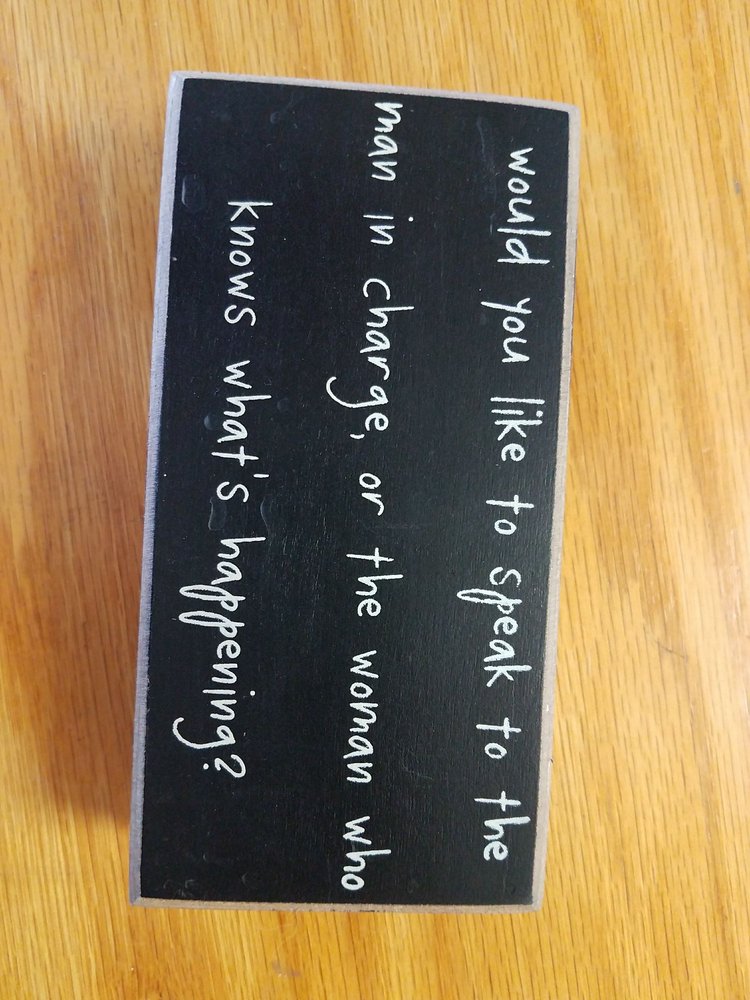 would you like to speak to the
man in charge, or the woman who
knows what's happening?